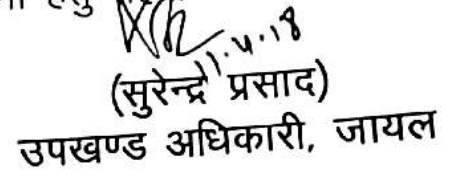 हेतु
1.4.18
(सुरेन्द्र प्रसाद)
उपखण्ड अधिकारी, जायल